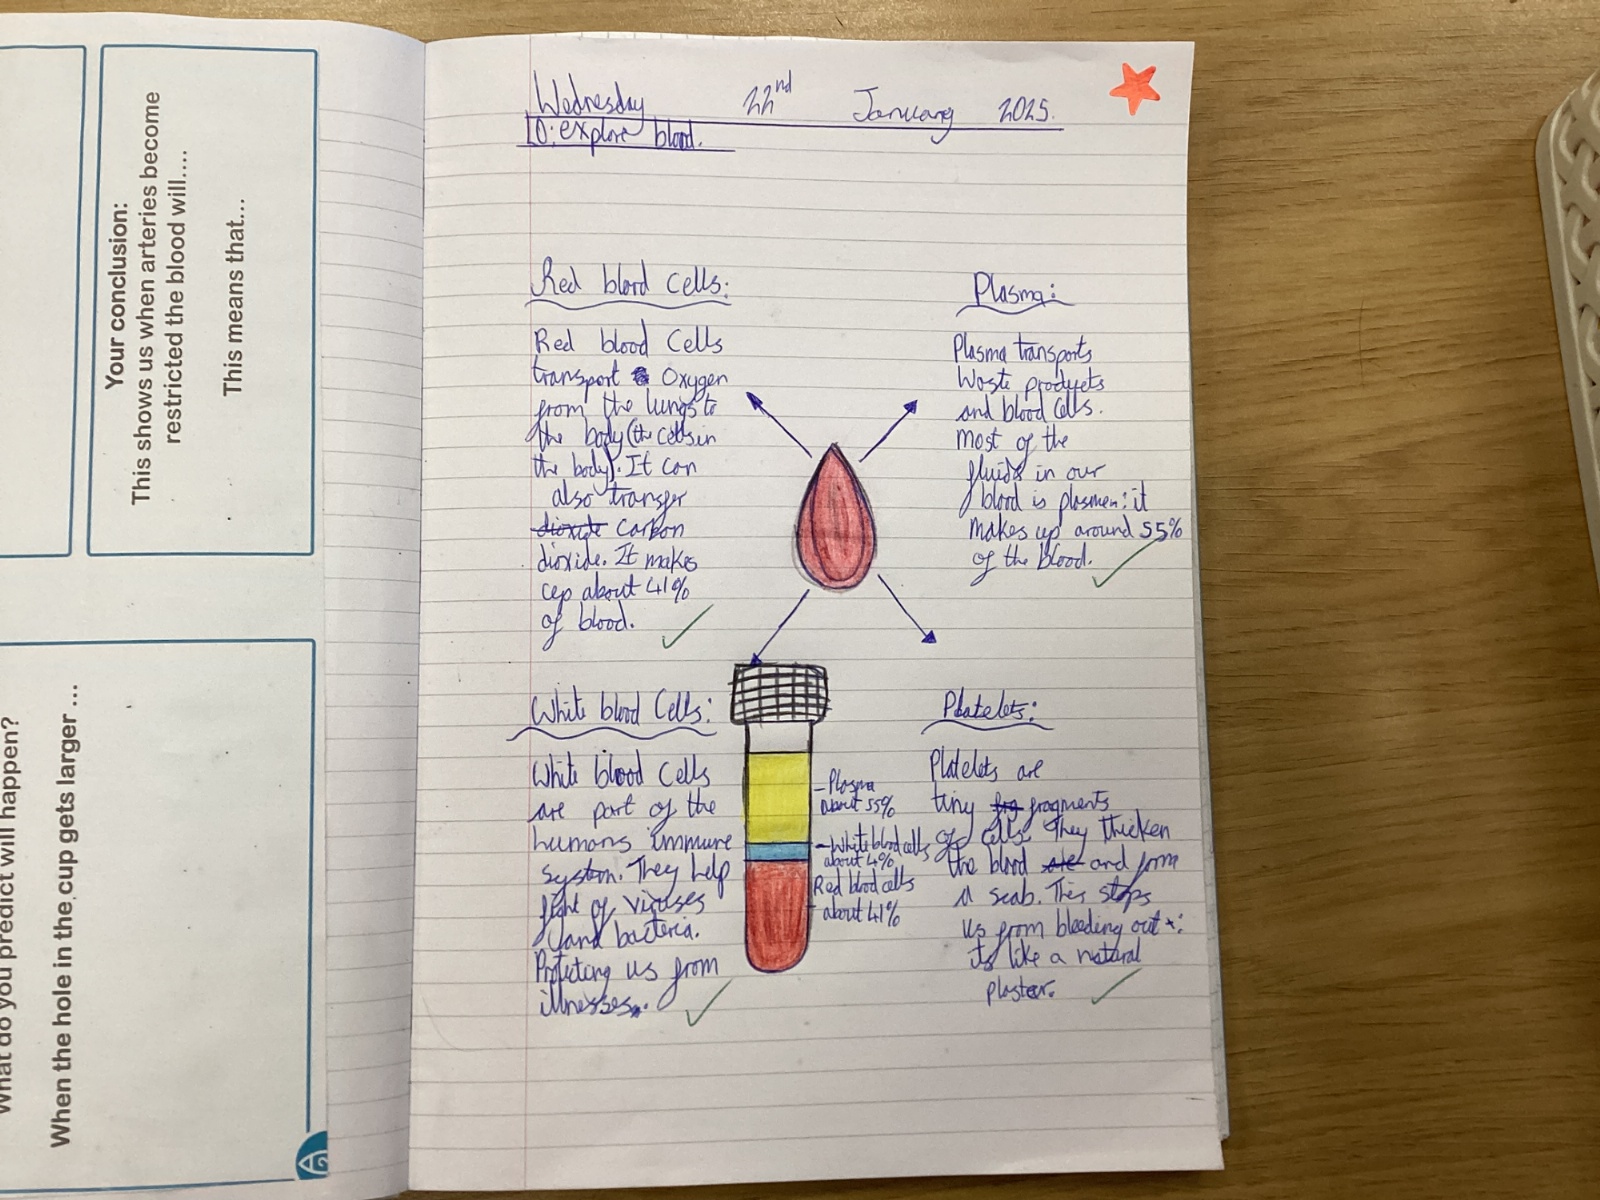 Your conclusion:
This shows us when arteries become
restricted the blood will....
This means that...
What do you predict will happen?
When the hole in the cup gets larger ...
Wednesday 22nd January 2025.
LO: explore blood.
Red blood Cells:
Red blood Cells
transport Oxygen
from the lungs to
the body (the cells in
the body). It can
also transfer
dioxide carbon
dioxide. It makes
up about 41%
of blood.
Plasma:
Plasma transports
Waste products
and blood cells.
most of the
fluids in our
blood is plasmen: it
makes up around 55%
of the blood.
White blood Cells:
White blood Cells
are part of the
humans immune
system. They help
fight of viruses
and bacteria.
Protecting us from
illnesses.
Plasma
about 55%
White blood cells
about 4%
Red blood cells
about 41%
Platelets:
Platelets are
tiny fragments
of cells. They thicken
the blood and form
a scab. This stops
us from bleeding out
its like a natural
plaster.